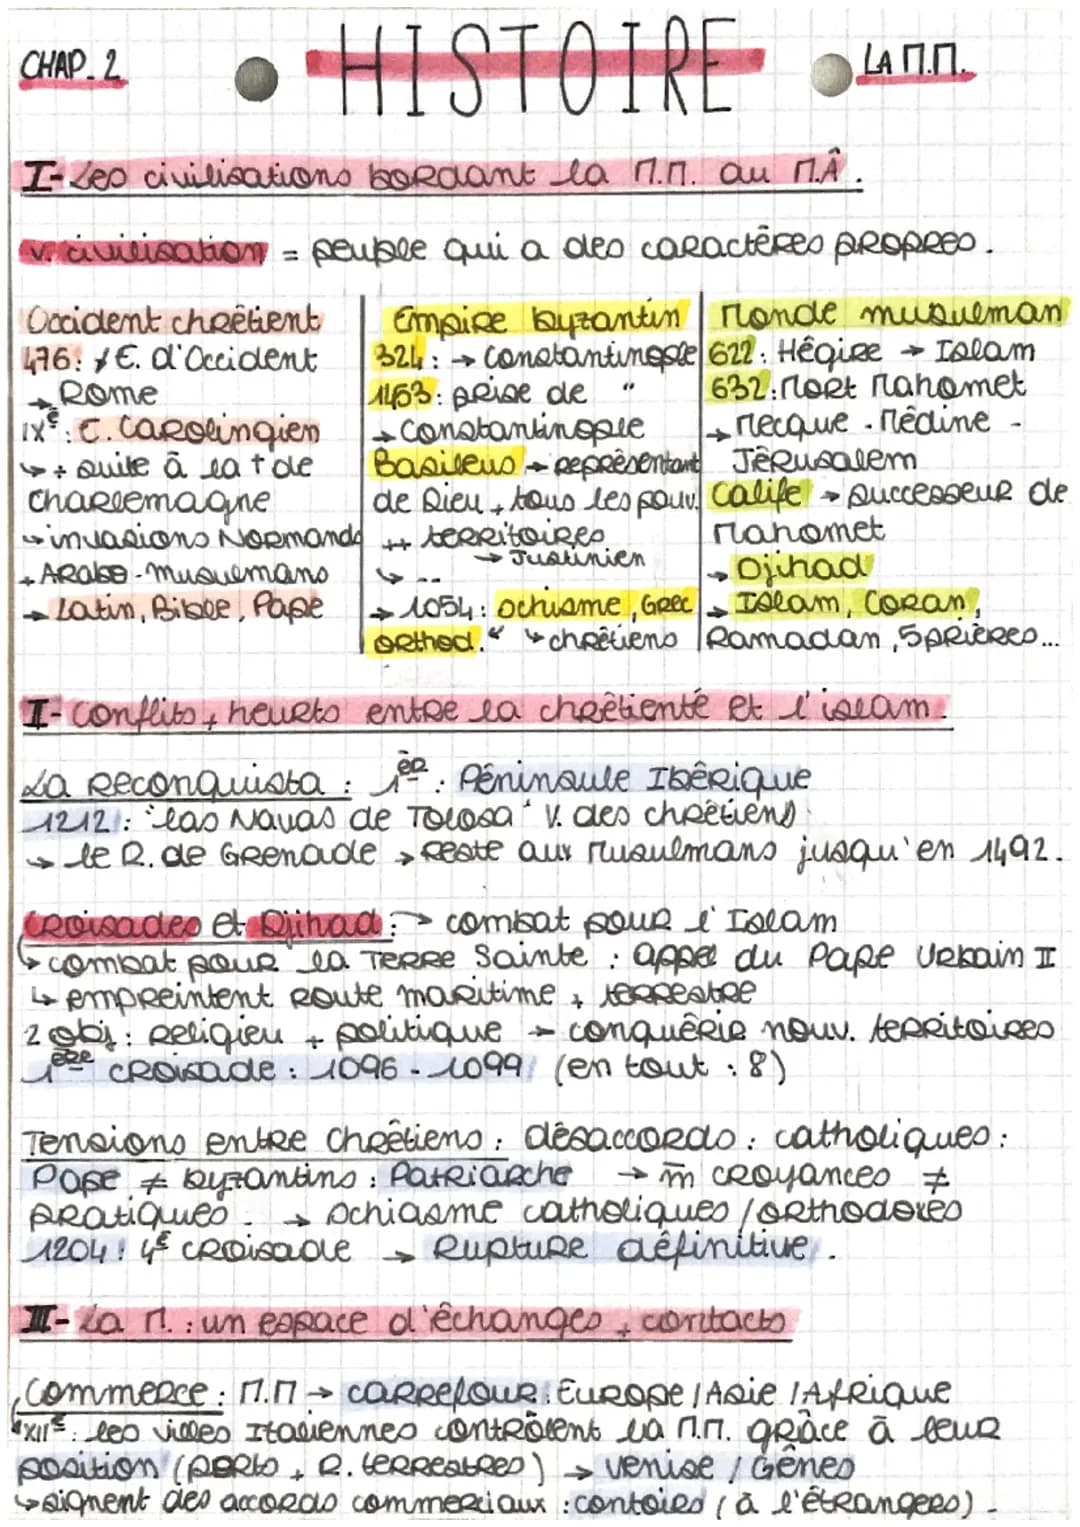 CHAP. 2
HISTOIRE
LA M.M.
I- Les civilisations bordant la M.M. au M.Â.
v. civilisation = peuple qui a des caractères propres.
Occident chrétient
476: E. d'Occident
→ Rome
IX<sup>e</sup>: E. Carolingien
↳ + suite à la † de
Charlemagne
→ invasions Normands
+ Arabo-musulmans
→ Latin, Bible, Pape
Empire byzantin
324: → Constantinople
1453: prise de "
→ Constantinople
Basileus → représentant
de Dieu + tous les pouv.
++ territoires
→ Justinien
↳ --
→ 1054: schisme, Grec
orthod. " ↳ chrétiens
Monde musulman
622: Hégire → Islam
632: Mort Mahomet
→ Mecque - Médine -
Jérusalem
Calife → successeur de
Mahomet
→ Djihad
→ Islam, Coran,
Ramadan, 5 prières...
I- Conflits + heurts entre la chrétienté et l'islam.
La Reconquista : 1<sup>èr</sup> : Péninsule Ibérique
1212: "las Navas de Tolosa" V. des chrétiens
→ le R. de Grenade → reste aux musulmans jusqu'en 1492.
Croisades et Djihad : → combat pour l'Islam
↳ combat pour la Terre Sainte : appel du Pape Urbain II
↳ empreintent route maritime + terrestre
2 obj: religieu + politique → conquérir nouv. territoires
1<sup>ère</sup> croisade : 1096 - 1099 (en tout : 8)
Tensions entre Chrétiens : désaccords : catholiques :
Pape ≠ byzantins : Patriarche → m̄ croyances ≠
pratiques. → schiasme catholiques / orthodoxes
1204: 4<sup>e</sup> croisade → Rupture définitive.
III- La M. : un espace d'échanges + contacts
Commerce : M.M → carrefour : Europe / Asie / Afrique
XII<sup>e</sup>: les villes Italiennes contrôlent la M.M. grâce à leur
position (ports + R. terrestres) → Venise / Gênes
↳ signent des accords commerciaux : contoirs (à l'étrangers).